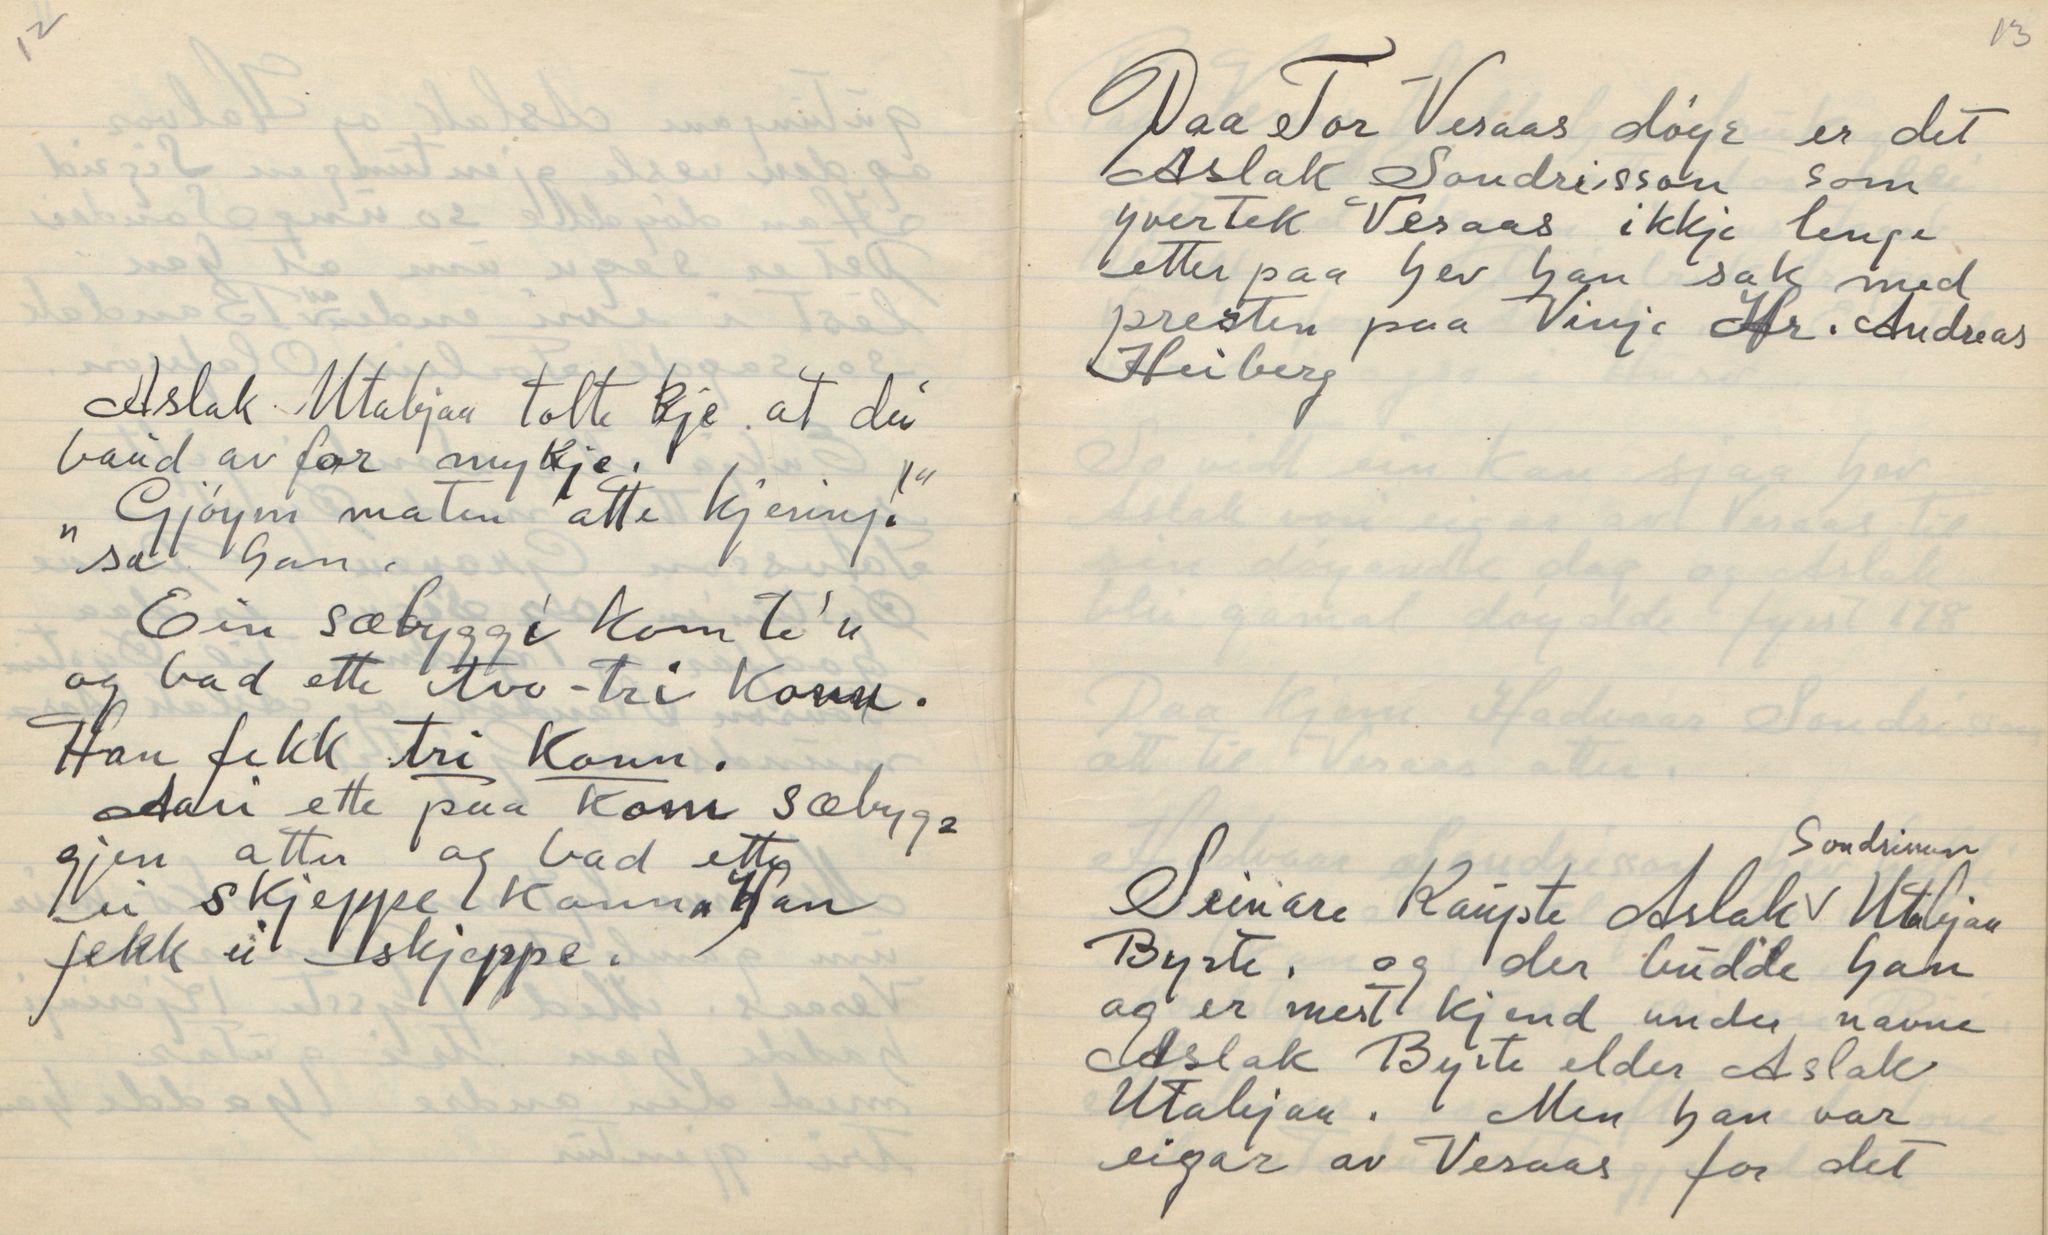 12
Aslak Utabjaa tolte kje at dei
baud av for mykje.
"Gjöym maten atte kjering!"
sa han.
Ein sæbyggi kom te'n
og bad ette tvo-tri konn.
Han fekk tri konn.
Aari ette paa kom sæbyg=
gjen atter og bad ette
ei skjeppe konn. Han
fekk ei skjeppe.
13
Daa Tor Vesaas döyr er det
Aslak Sondrisson som
yvertek Vesaas ikkje lenge
etter paa hev han sak med
presten paa Vinje Hr. Andreas
Heiberg
Sondrisson
Seinare kaupte Aslak V Utabjaa
Byrte. og der budde han
og er mest kjend under navne
Aslak Byrte elder Aslak
Utabjaa. Men han var
eigar av Vesaas for det